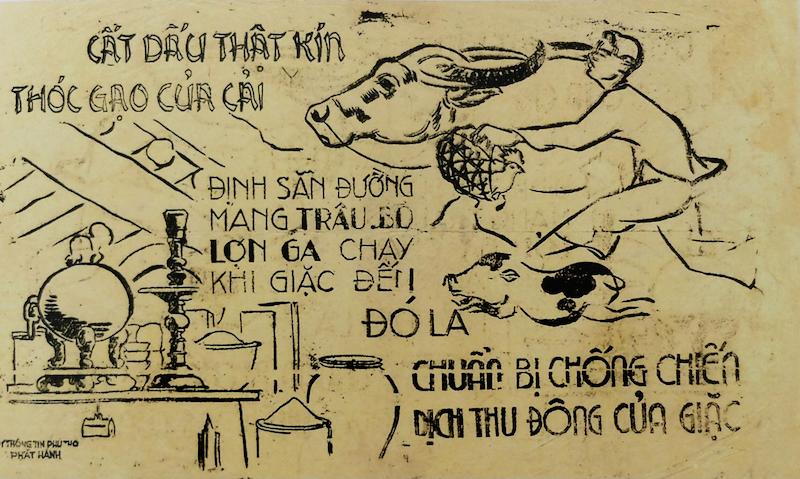 CẤT DẤU THẬT KÍN
THÓC GẠO CỦA CẢI
ĐỊNH SẴN ĐƯỜNG
MANG TRÂU.BÒ
LỢN GA CHẠY
KHI GIẶC ĐẾN!
ĐÓ LA
CHUẨN BỊ CHỐNG CHIẾN
DỊCH THU ĐÔNG CỦA GIẶC
TY THÔNG TIN PHU THO
PHÁT HÀNH